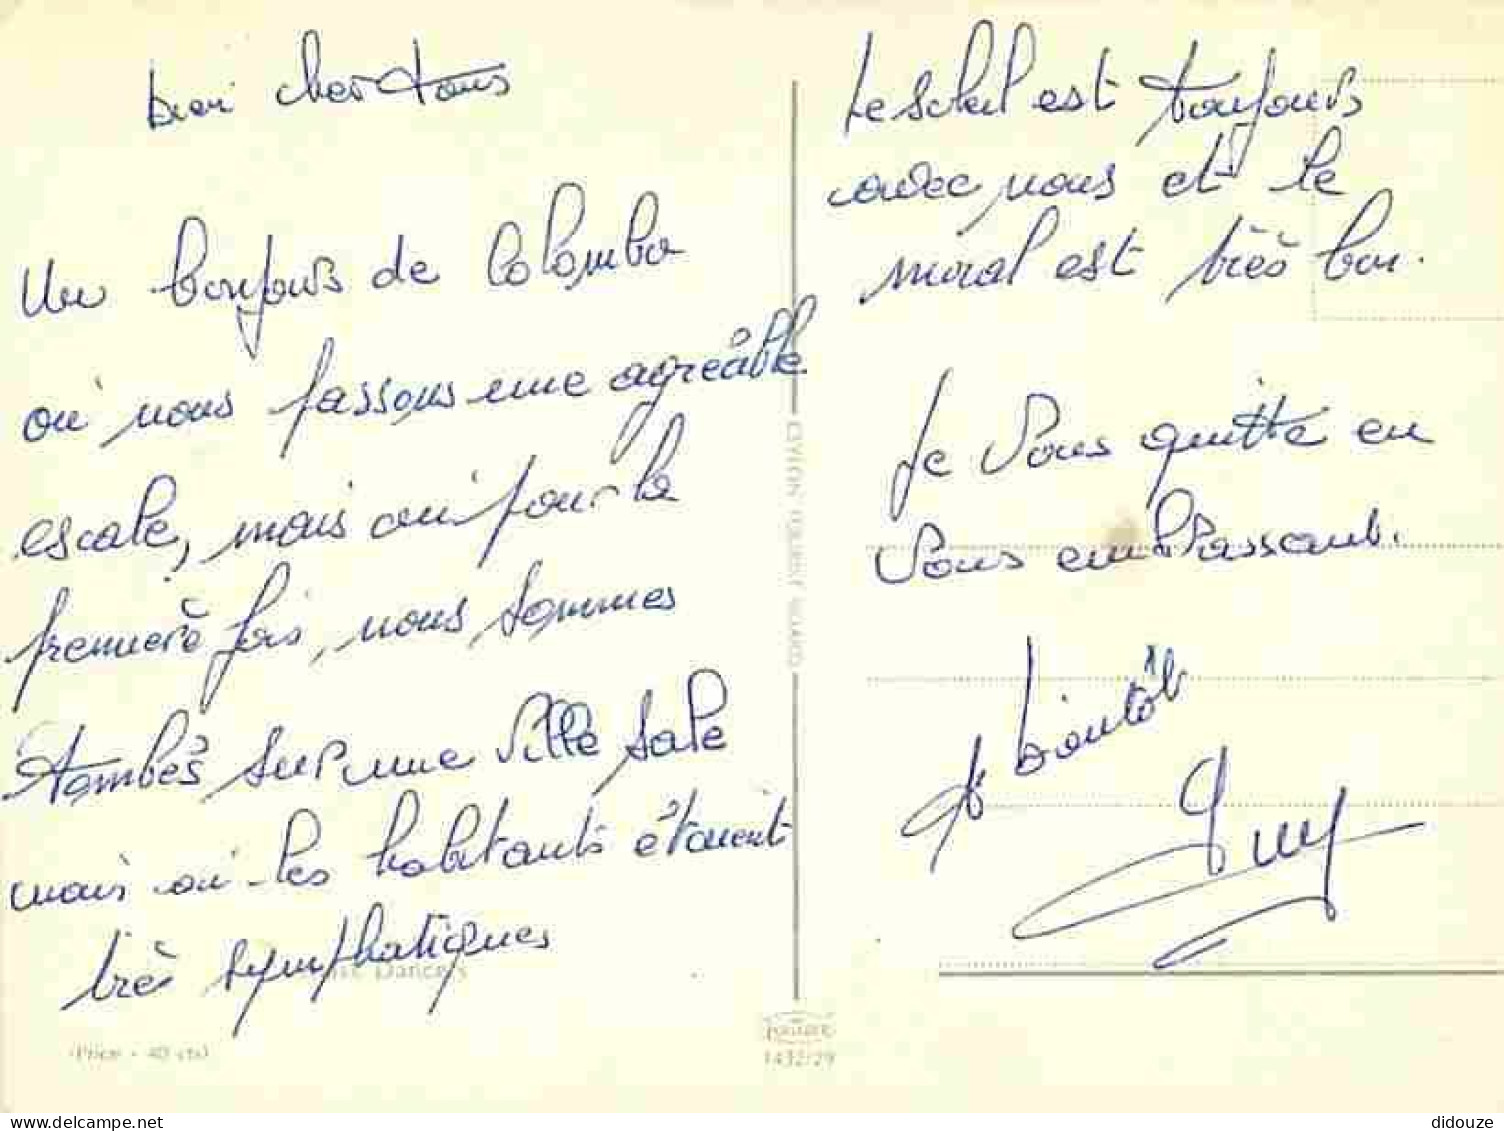 cher tous
Un bonjours de Colombo
où nous passons une agréable
escale, mais où pour la
première fois, nous sommes
tombés sur une ville sale
mais où les habitants étaient
très symphatiques
Dancers
(Price - 40 cts)
Le soleil est toujours
avec nous et le
moral est très bon.
Je vous quitte en
vous embrassant.
A bientôt
Guy
CEYLON
1432/29
didouze